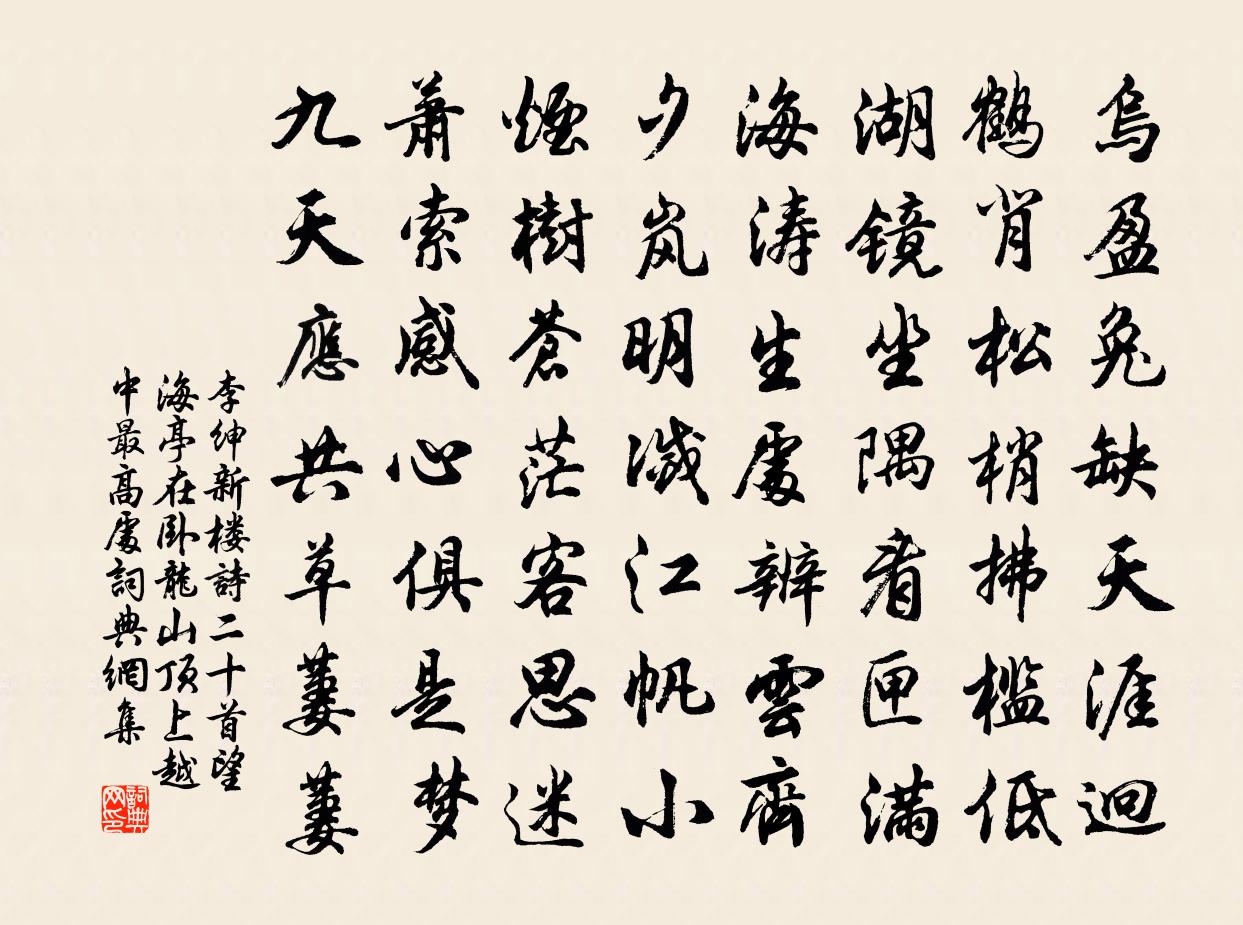 烏盈兔缺天涯迥
鶴背松梢拂檻低
湖镜坐隅看匣滿
海涛生處辨雲齊
夕岚明滅江帆小
煙樹蒼茫客思迷
蕭索感心俱是梦
九天應共草萋萋
李绅新楼詩二十首望
海亭在卧龍山顶上越
中最高處詞典網集
詞典网印